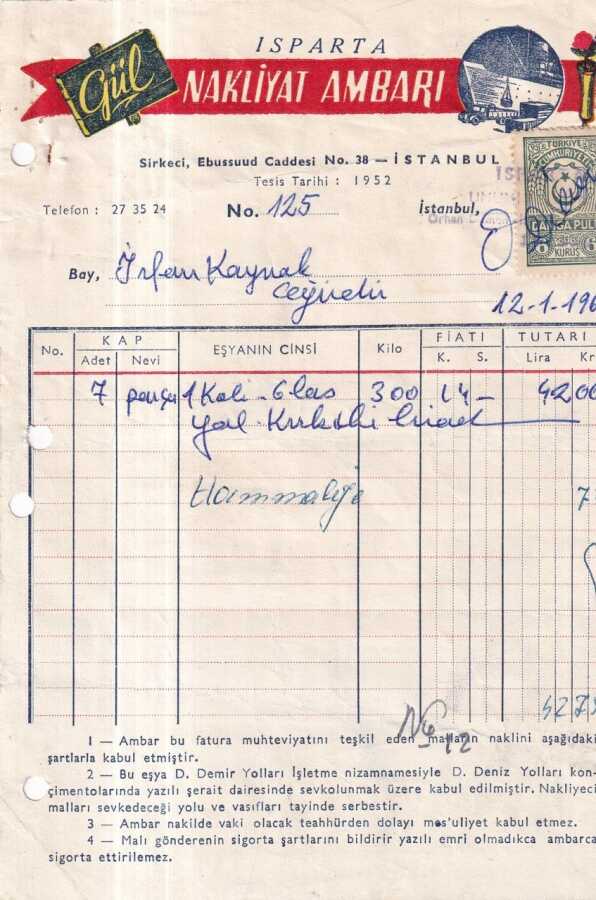 Gül
ISPARTA
NAKLİYAT AMBARI
Sirkeci, Ebussuud Caddesi No. 38 — İSTANBUL
Tesis Tarihi : 1952
Telefon : 27 35 24
No. 125
İstanbul,
TÜRKİYE
CUMHURİYETİ
DAMGA PULU
6 KURUŞ 6
Bay, İrfan Kaynak
12-1-196
No.
KAP
Adet
Nevi
EŞYANIN CİNSİ
Kilo
FİATI
K. S.
TUTARI
Lira Kr
7 parça 1 Koli - 6 las 300 14 - 4200
Hammaliye 7
427
No 12
1 — Ambar bu fatura muhteviyatını teşkil eden malların naklini aşağıdaki
şartlarla kabul etmiştir.
2 — Bu eşya D. Demir Yolları İşletme nizamnamesiyle D. Deniz Yolları kon-
çimentolarında yazılı şerait dairesinde sevkolunmak üzere kabul edilmiştir. Nakliyeci
malları sevkedeceği yolu ve vasıfları tayinde serbestir.
3 — Ambar nakilde vaki olacak teahhürden dolayı mes'uliyet kabul etmez.
4 — Malı gönderenin sigorta şartlarını bildirir yazılı emri olmadıkca ambarca
sigorta ettirilemez.